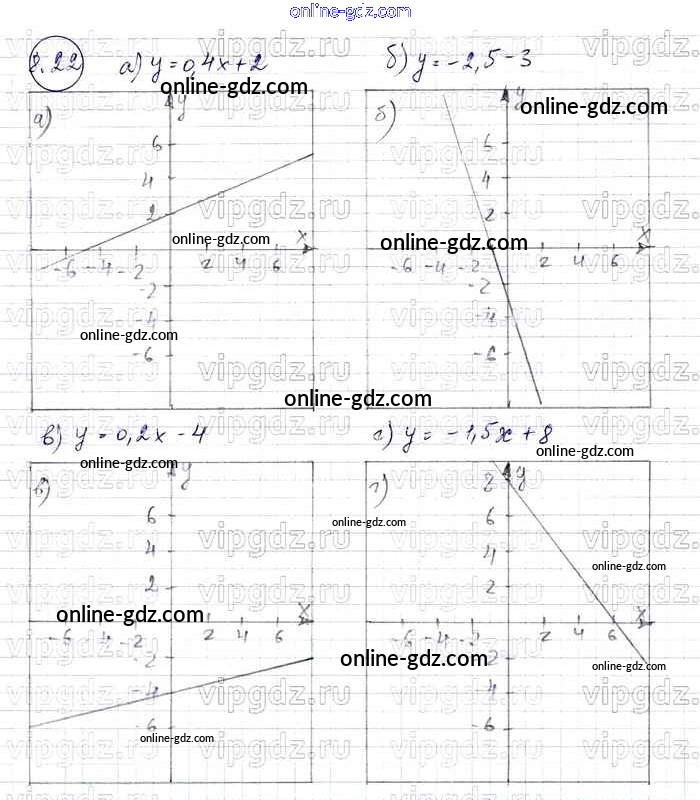 online-gdz.com
8.22 а) y = 0,4x + 2 б) y = -2,5 - 3
online-gdz.com
а) y б) y
online-gdz.com
6 6
4 4
2 2
online-gdz.com x online-gdz.com x
-6 -4 -2 2 4 6 -6 -4 -2 2 4 6
-2 -2
-4 -4
online-gdz.com
-6 -6
online-gdz.com
в) y = 0,2x - 4 г) y = -1,5x + 8
online-gdz.com
online-gdz.com
в) y г) 8 y
6 6
online-gdz.com
4 4
online-gdz.com
2 2
online-gdz.com x x
-6 -4 -2 2 4 6 -6 -4 -2 2 4 6
-2 -2
online-gdz.com
online-gdz.com
-4 -4
-6 -6
online-gdz.com
vipgdz.ru